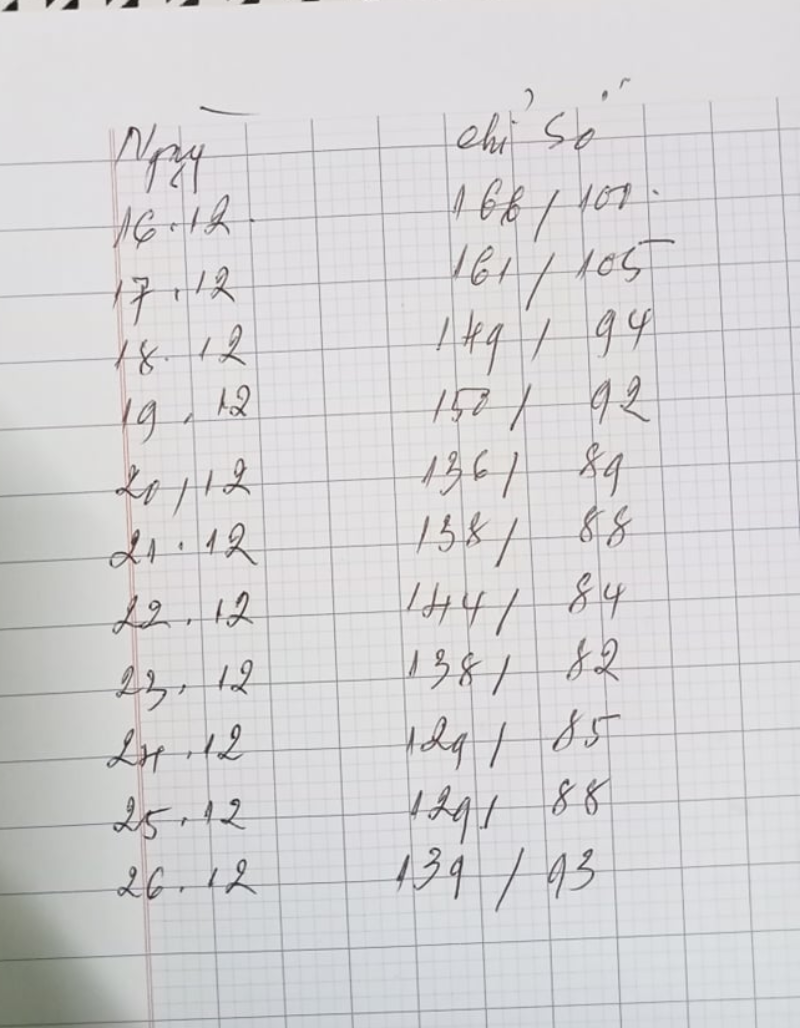 Ngày chỉ số
16.12 168 / 101
17.12 161 / 105
18.12 149 / 94
19.12 150 / 92
20/12 136 / 89
21.12 138 / 88
22.12 144 / 84
23.12 138 / 82
24.12 129 / 85
25.12 129 / 88
26.12 139 / 93